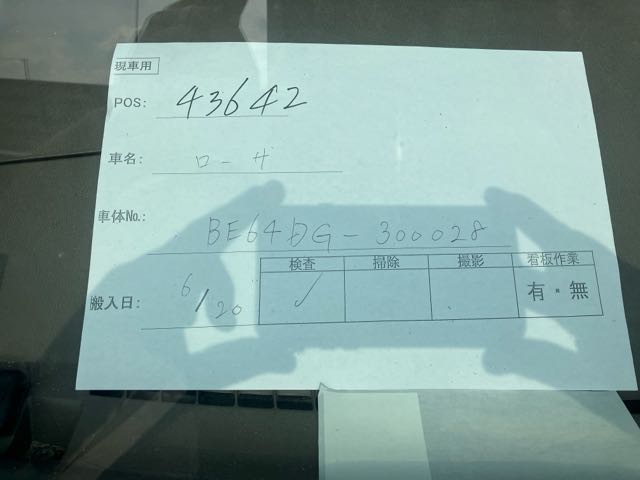 現車用
POS: 43642
車名: ローザ
車体No.: BE64DG-300028
検査 掃除 撮影 看板作業
搬入日: 6/20 ✓ 有・無